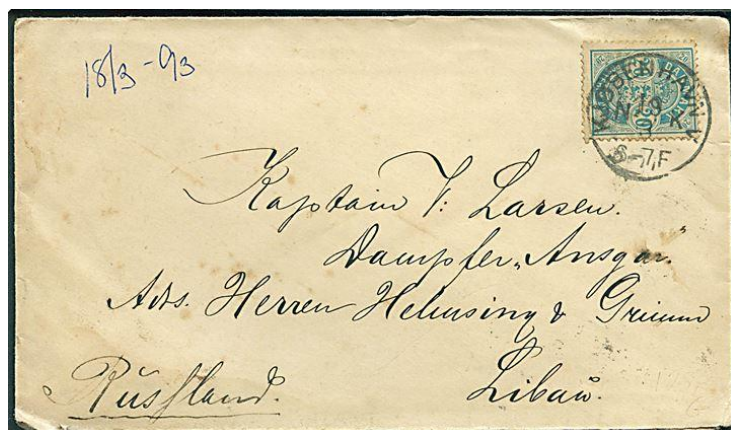 18/3 - 93
KJØBENHAVN
N. K
19
3
6-7,F
Kaptain V: Larsen.
Dampfer „Ansgar.“
Adrs. Herren Helmsing & Grimm
Libau.
Russland.